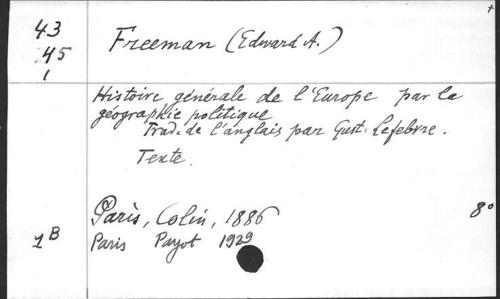 43
45
1
Freeman (Edward A.)
Histoire générale de l'Europe par la
géographie politique
Trad. de l'anglais par Gust. Lefebvre.
Texte.
Paris, Colin, 1886
8°
1B
Paris Payot 1929